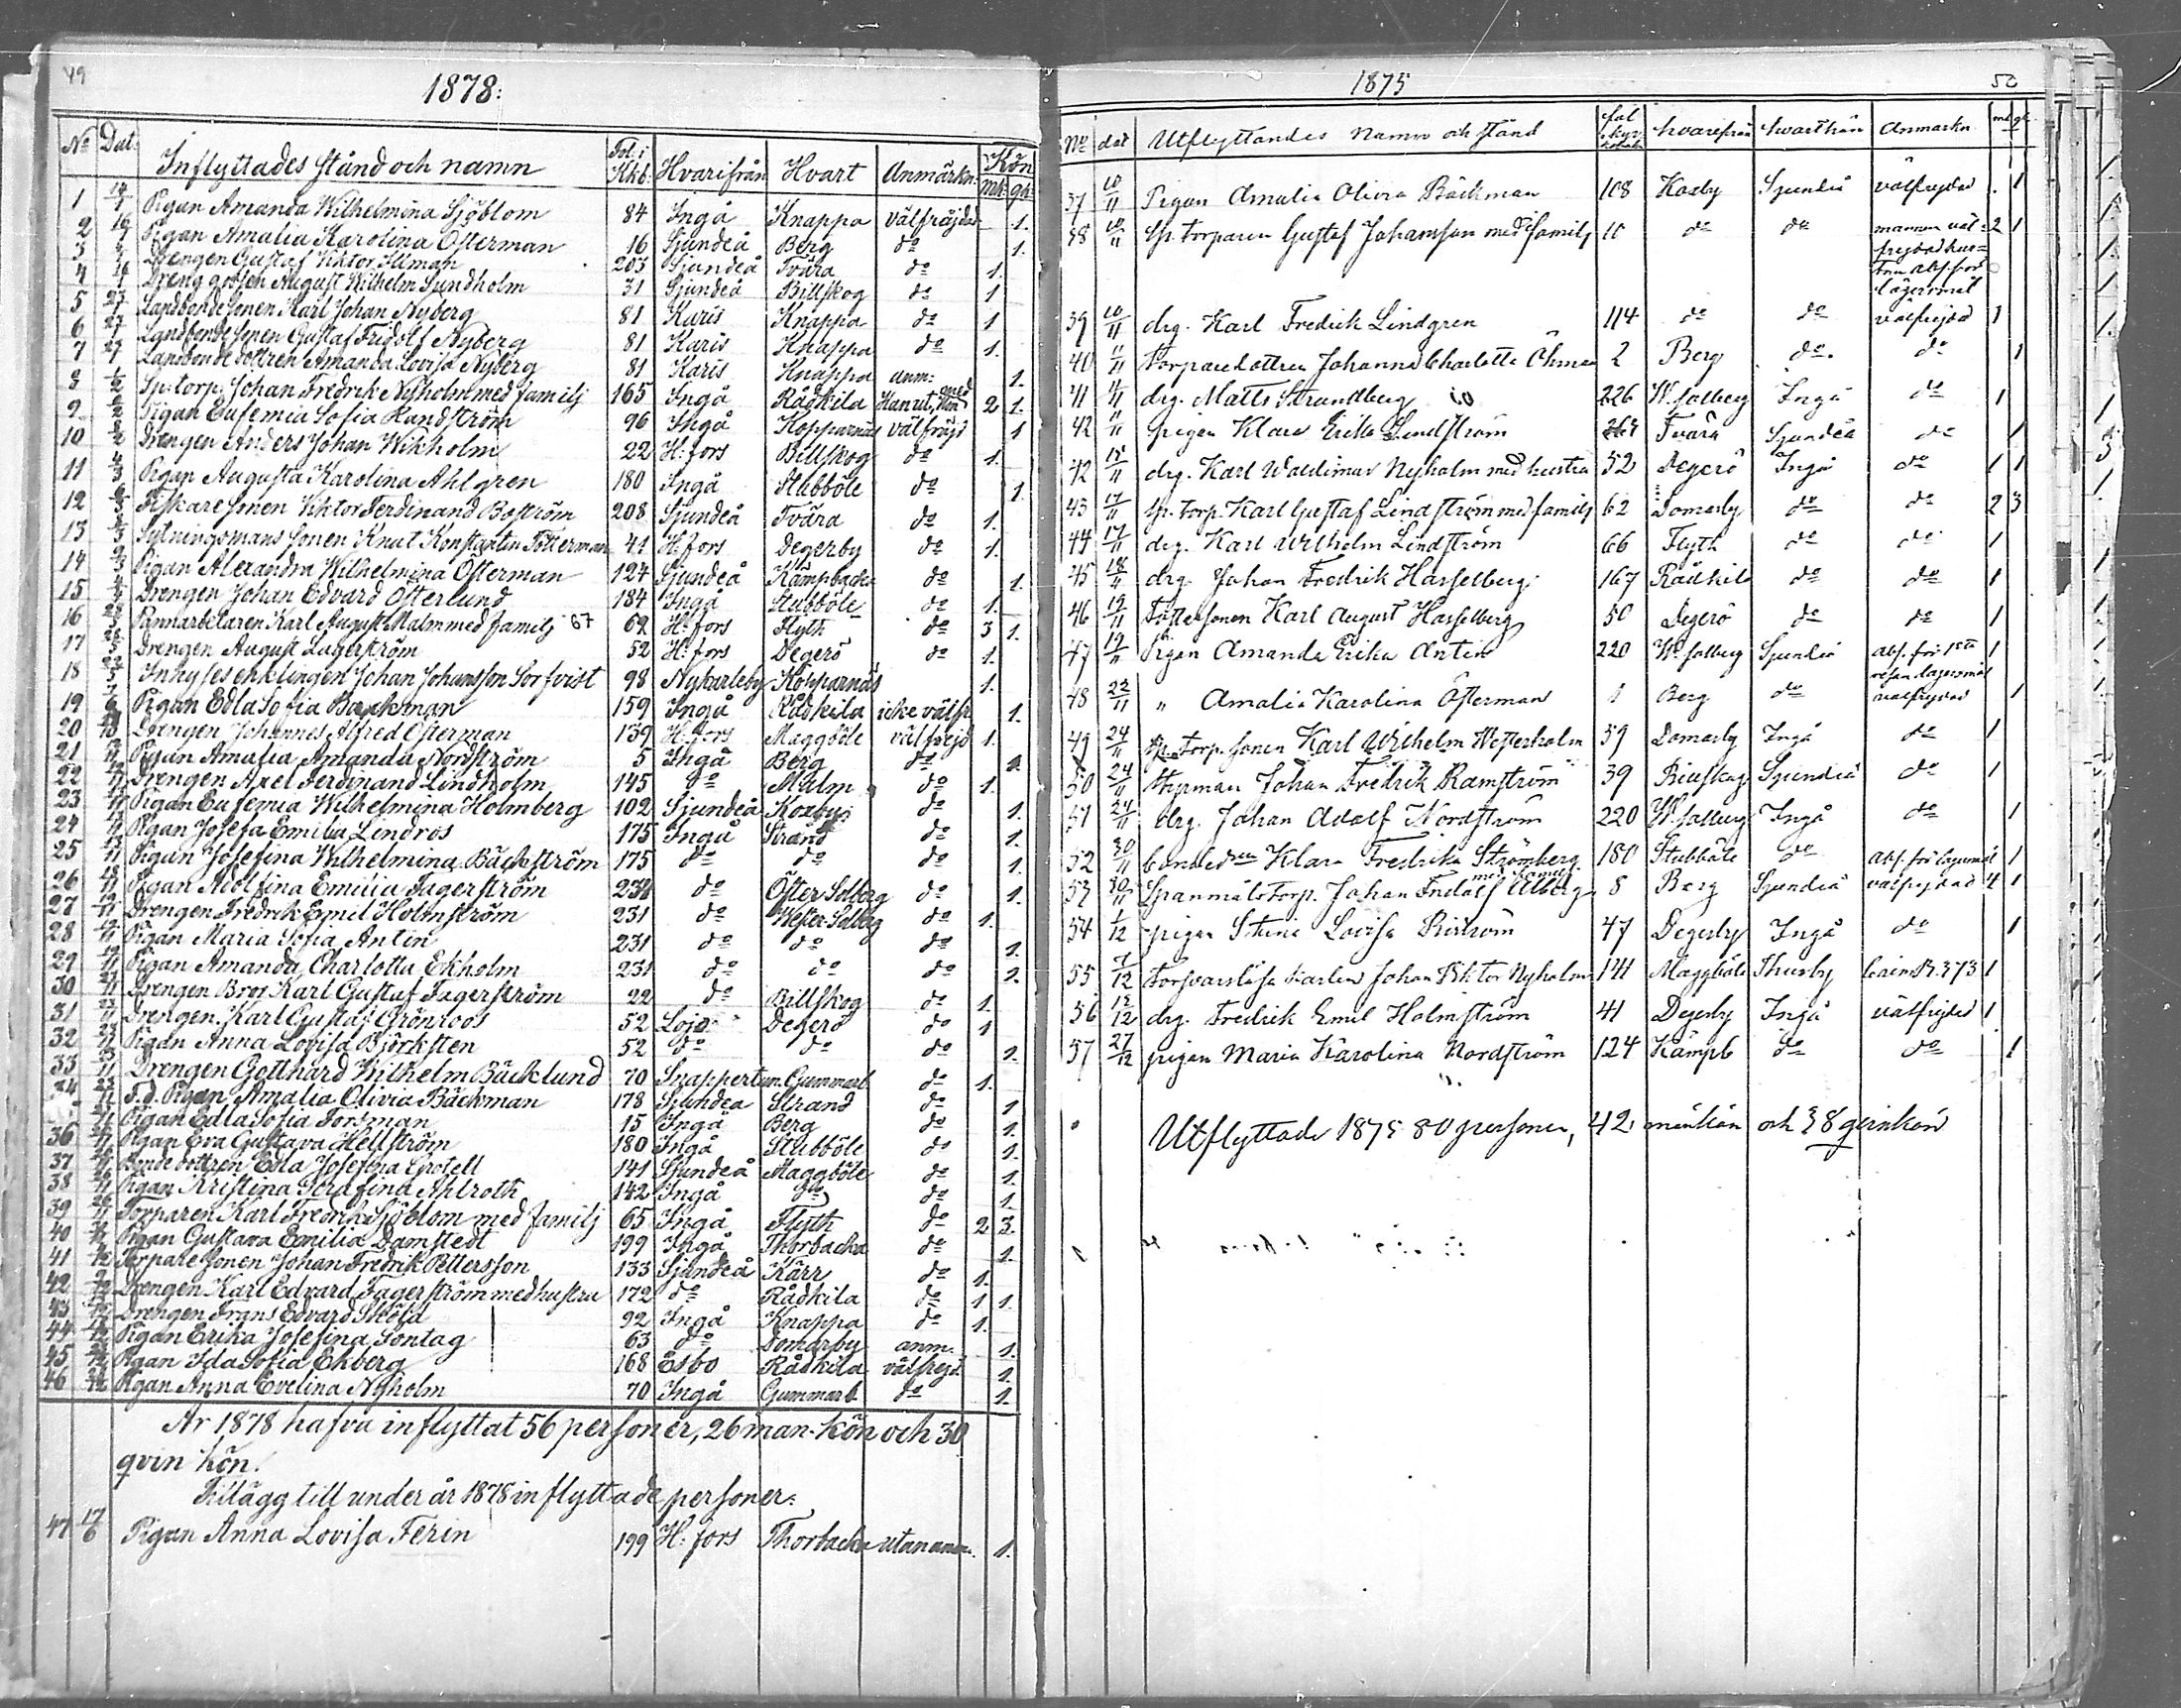 49
1878:
No Dat: Inflyttades stånd och namn Fol: i Kkb. Hvarifrån Hvart Anmärkn: Kön mk. qk.
1 14/1 Pigan Amanda Wilhelmina Sjöblom 84 Ingå Knappa välfräjdad 1.
2 16/1 Pigan Amalia Karolina Österman 16 Sjundeå Berg do 1.
3 Drengen Gustaf Viktor Illman 203 Sjundeå Tvära do 1.
4 Dreng gossen August Wilhelm Sundholm 31 Sjundeå Billskog do 1
5 27/1 Landbondesonen Karl Johan Nyberg 81 Karis Knappa do 1
6 27/1 Landbondesonen Gustaf Fridolf Nyberg 81 Karis Knappa do 1.
7 27/1 Landbondedottren Amanda Lovisa Nyberg 81 Karis Knappa anm: 1.
8 1/2 Sp: torp. Johan Fredrik Nyholm med familj 165 Ingå Rådkila 2 1.
9 Pigan Eufemia Sofia Randström 96 Ingå Kopparnäs välfräjd 1
10 Drengen Anders Johan Wikholm 22 H: fors Billskog do 1.
11 4/3 Pigan Augusta Karolina Ahlgren 180 Ingå Stubböle do 1.
12 Fiskaresonen Viktor Ferdinand Boström 208 Sjundeå Tvära do 1.
13 Sytningsmans sonen Knut Konstantin Fötterman 41 H: fors Degerby do 1.
14 Pigan Alexandra Wilhelmina Österman 124 Sjundeå Kämpbacka do 1.
15 Drengen Johan Edvard Österlund 184 Ingå Stubböle do 1.
16 Pannarbetaren Karl August Malm med familj 67 69 H: fors Flyth do 3 1.
17 Drengen August Lagerström 52 H: fors Degerö do 1.
18 Inhyses enklingen Johan Johansson Sorfvist 98 Nykarleby Kopparnäs 1.
19 Pigan Edla Sofia Backman 159 Ingå Rådkila icke välfr 1.
20 Drengen Johannes Alfred Österman 139 H: fors Maggböle välfrejd 1.
21 Pigan Amalia Amanda Nordström 5 Ingå Berg do 1.
22 Drengen Axel Ferdinand Lindholm 145 do Malm do 1.
23 Pigan Eufemia Wilhelmina Holmberg 102 Sjundeå Koxby do 1.
24 Pigan Josefa Emilia Lindros 175 Ingå Strand do 1.
25 Pigan Josefina Wilhelmina Bäckström 175 do do do 1.
26 Pigan Adolfina Emilia Fagerström 231 do Öster Solberg do 1.
27 Drengen Fredrik Emil Holmström 231 do Wester Solberg do 1.
28 Pigan Maria Sofia Antin 231 do do do 1.
29 Pigan Amanda Charlotta Ekholm 231 do do do 1.
30 Drengen Bror Karl Gustaf Fagerström 22 do Billskog do 1.
31 Drengen Karl Gustaf Grönroos 52 Lojo Degerö do 1
32 Pigan Anna Lovisa Björksten 52 do do do 1.
33 Drengen Gotthard Wilhelm Bäcklund 70 Snappertun. Gummarb. do 1.
34 F.d. Pigan Amalia Olivia Bäckman 178 Sjundea Strand do 1
Pigan Edla Sofia Forsman 15 Ingå Berg do 1.
36 Pigan Eva Gustava Hellström 180 Ingå Stubböle do 1.
37 Bonde dottren Edla Josefina Grotell 141 Sjundeå Maggböle do 1.
38 Pigan Kristina Serafina Ahlroth 142 Ingå do do 1.
39 Torparen Karl Fredrik Sjöblom med familj 65 Ingå Flyth do 2 3.
40 Pigan Gustava Emilia Damstedt 199 Ingå Thorbacka do 1.
41 Torparesonen Johan Fredrik Pettersson 133 Sjundeå Kärr do 1.
42 Drengen Karl Edvard Fagerström med hustru 172 do Rådkila do 1 1.
43 Drengen Frans Edvard Sköld 92 Ingå Knappa do 1.
44 Pigan Erika Josefina Sontag 63 do Domarby anm. 1.
45 Pigan Ida Sofia Ekberg 168 Esbo Rådkila välfrejd. 1.
46 Pigan Anna Evelina Nyholm 70 Ingå Gummarb. do 1.
År 1878 hafva inflyttat 56 personer, 26 man-kön och 30
qvin kön.
Tillägg till under år 1878 inflyttade personer:
47 17/6 Pigan Anna Lovisa Ferin 199 H: fors Thorbacka utan anm. 1.
1875
50
No dat Utflyttandes namn och stånd hvarefrån hvarthän Anmärkn mk qk
37 10/11 Pigan Amalia Olivia Bäckman 108 Koxby Sjundeå välfrejdad 1
38 10/11 Sp. torparen Gustaf Johansson med familj 10 do do mannen väl- 2 1
frejdad hus-
trun abs. för
lägersmål
39 10/11 drg. Karl Fredrik Lindgren 114 do do välfrejdad 1
40 11/11 torparedottren Johanna Charlotta Öhman 2 Berg do. do. 1
41 11/11 drg. Matts Strandberg 226 W. solberg Ingå do 1
42 11/11 pigan Klara Erika Lindström Tvära Sjundeå do 1
42 15/11 drg. Karl Waldimar Nyholm med hustru 52 Degerö Ingå do 1 1
43 17/11 Sp. torp. Karl Gustaf Lindström med familj 62 Domarby do do 2 3
44 17/11 drg. Karl Wilhelm Lindström 66 Flyth do do 1
45 18/11 drg. Johan Fredrik Hasselberg 167 Rådkila do do 1
46 19/11 Karl August Hasselberg 50 Degerö do do 1
47 19/11 Pigan Amanda Erika Antin 220 W. solberg Sjundeå abs. för 1sta 1
resan lägersmål
48 22/11 " Amalia Karolina Österman 1 Berg do välfrejdad 1
49 24/11 Sp. torp. sonen Karl Wilhelm Westerholm 59 Domarby Ingå do 1
50 24/11 Styrman Johan Fredrik Ramström 39 Billskog Sjundeå do 1
51 24/11 drg. Johan Adolf Nordström 220 W. solberg Ingå do 1
52 30/11 Klara Fredrika Strömberg 180 Stubböle do abs. för lägersmål 1
med familj
53 30/11 Spanmålstorp. Johan Fridolf Alberg 8 Berg Sjundeå välfrejdad 4 1
54 1/12 pigan Stina Lovisa 47 Degerby Ingå do 1
55 7/12 försvarslösa karlen Johan Viktor Nyholm 141 Maggböle Thusby 1
56 12/12 drg. Fredrik Emil Holmström 41 Degerby Ingå välfrejdad 1
57 27/12 pigan Maria Karolina Nordström 124 Kämpb do do 1
Utflyttade 1875 80 personer, 42 mankön och 38 qvinkön